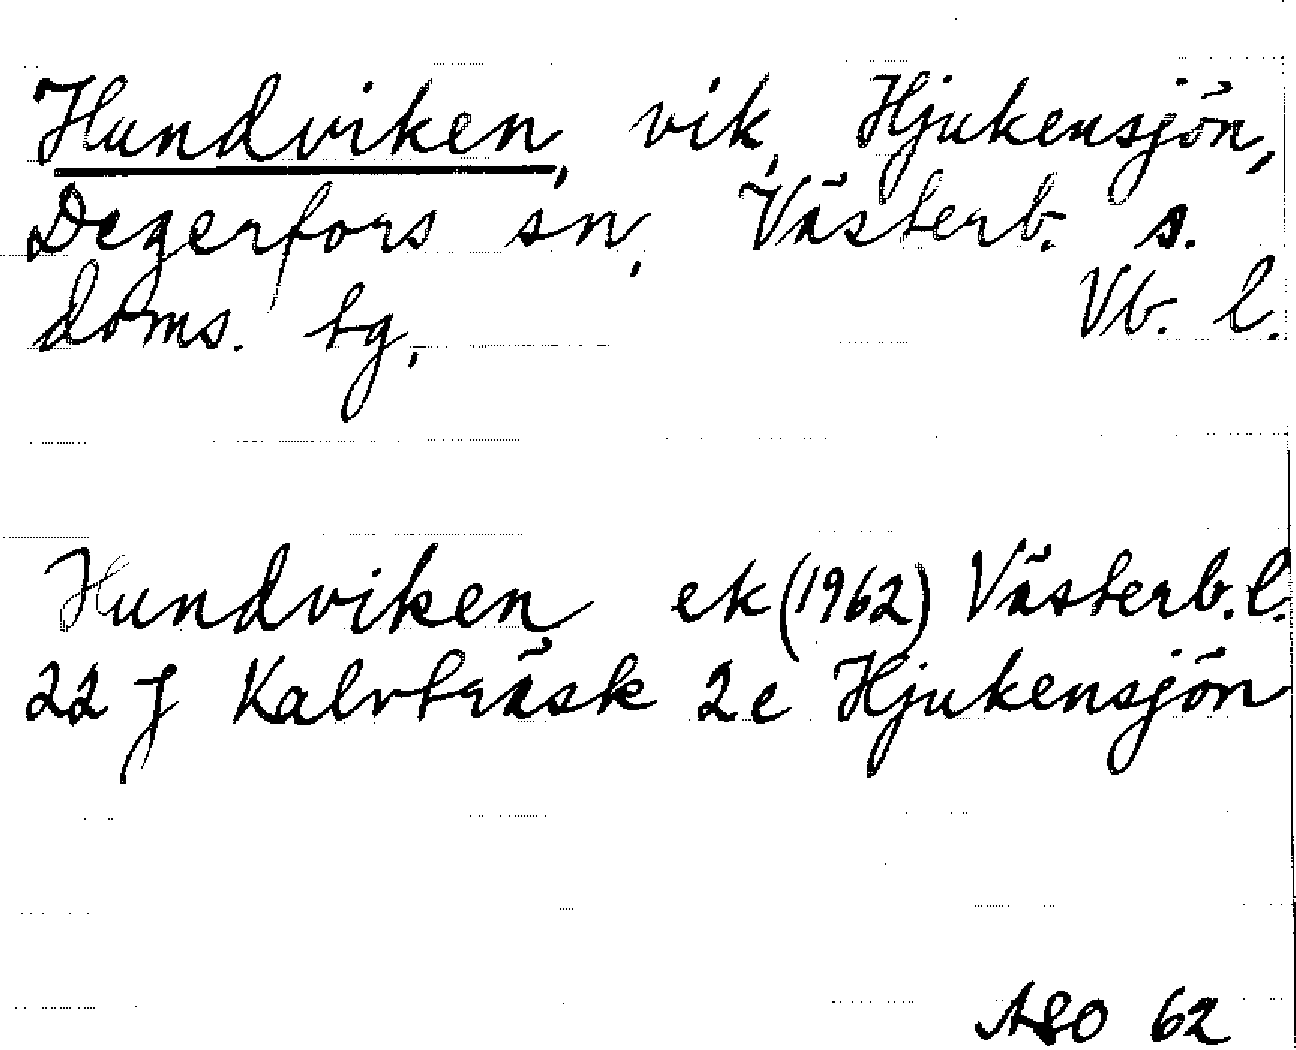 Hundviken, vik, Hjukensjön,
Degerfors sn, Västerb. s.
doms. tg, Vb. l.
Hundviken ek (1962) Västerb. l.
22 J Kalvträsk 2e Hjukensjön
ASO 62